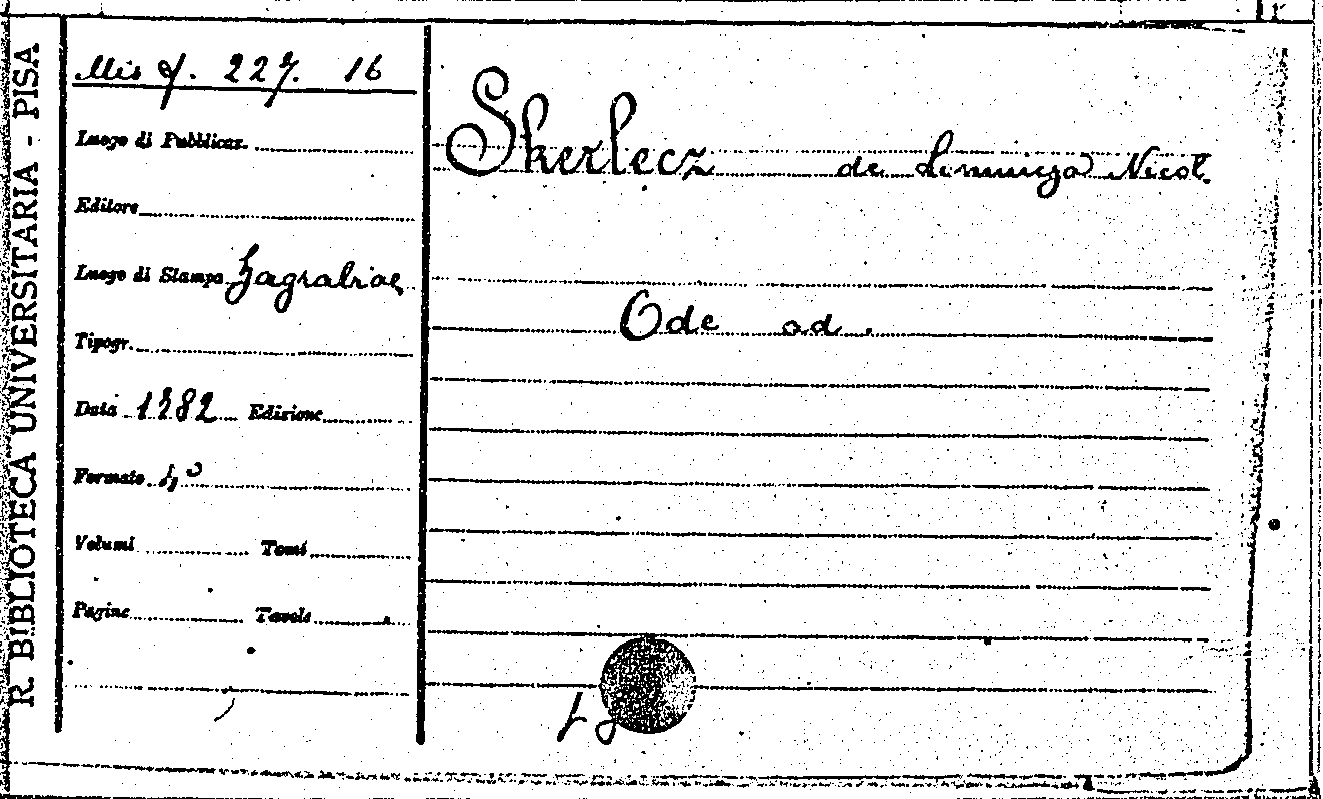 R. BIBLIOTECA UNIVERSITARIA - PISA
Mis f. 227. 16
Luogo di Pubblicaz.
Editore
Luogo di Stampa Zagrabiae
Tipogr.
Data 1782 Edizione
Formato 4°
Volumi Tomi
Pagine Tavole
Skerlecz de Lomnicza Nicol.
Ode ad .